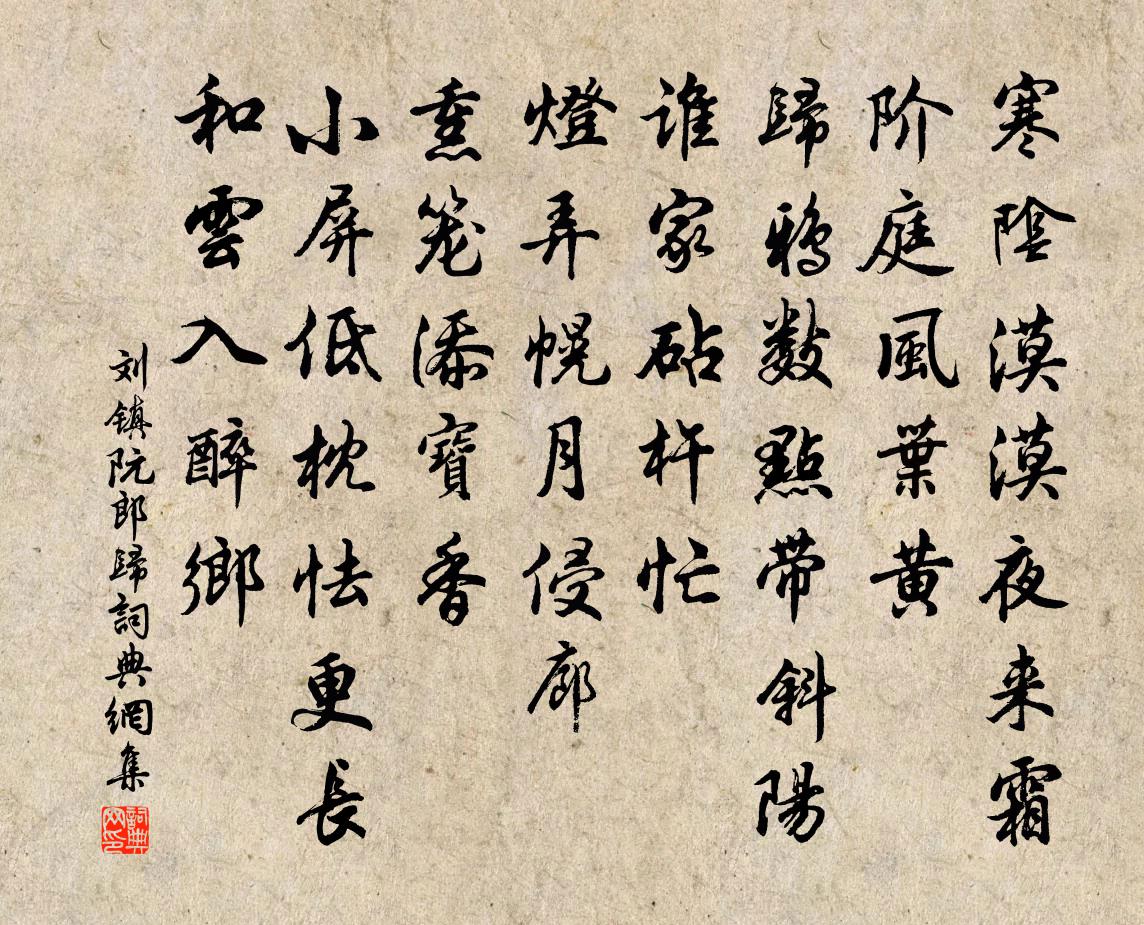 寒陰漠漠夜来霜
阶庭風葉黄
歸鴉數點带斜陽
谁家砧杵忙
燈弄幌月侵廊
熏笼添寶香
小屏低枕怯更長
和雲入醉鄉
刘镇阮郎歸詞典網集
詞典网印